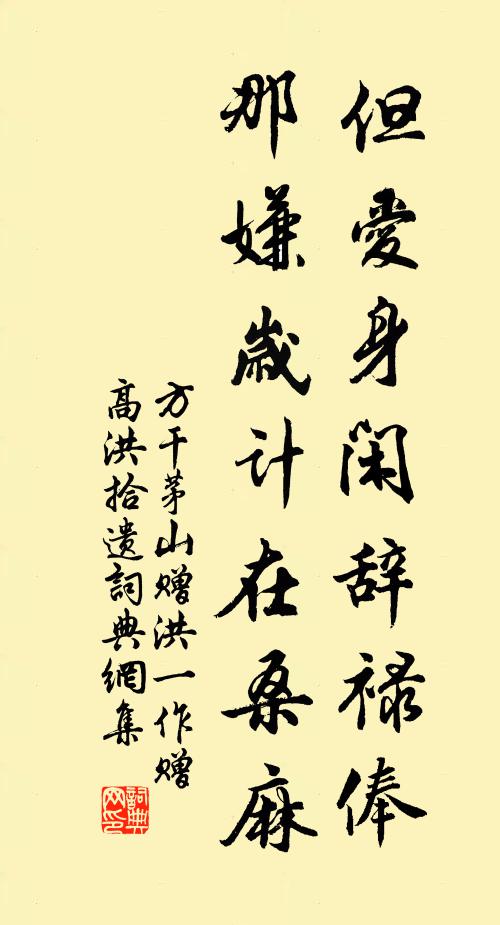 但愛身閑辞禄俸
那嫌歲计在桑麻
方干茅山赠洪一作赠
高洪拾遗詞典網集
詞典网印